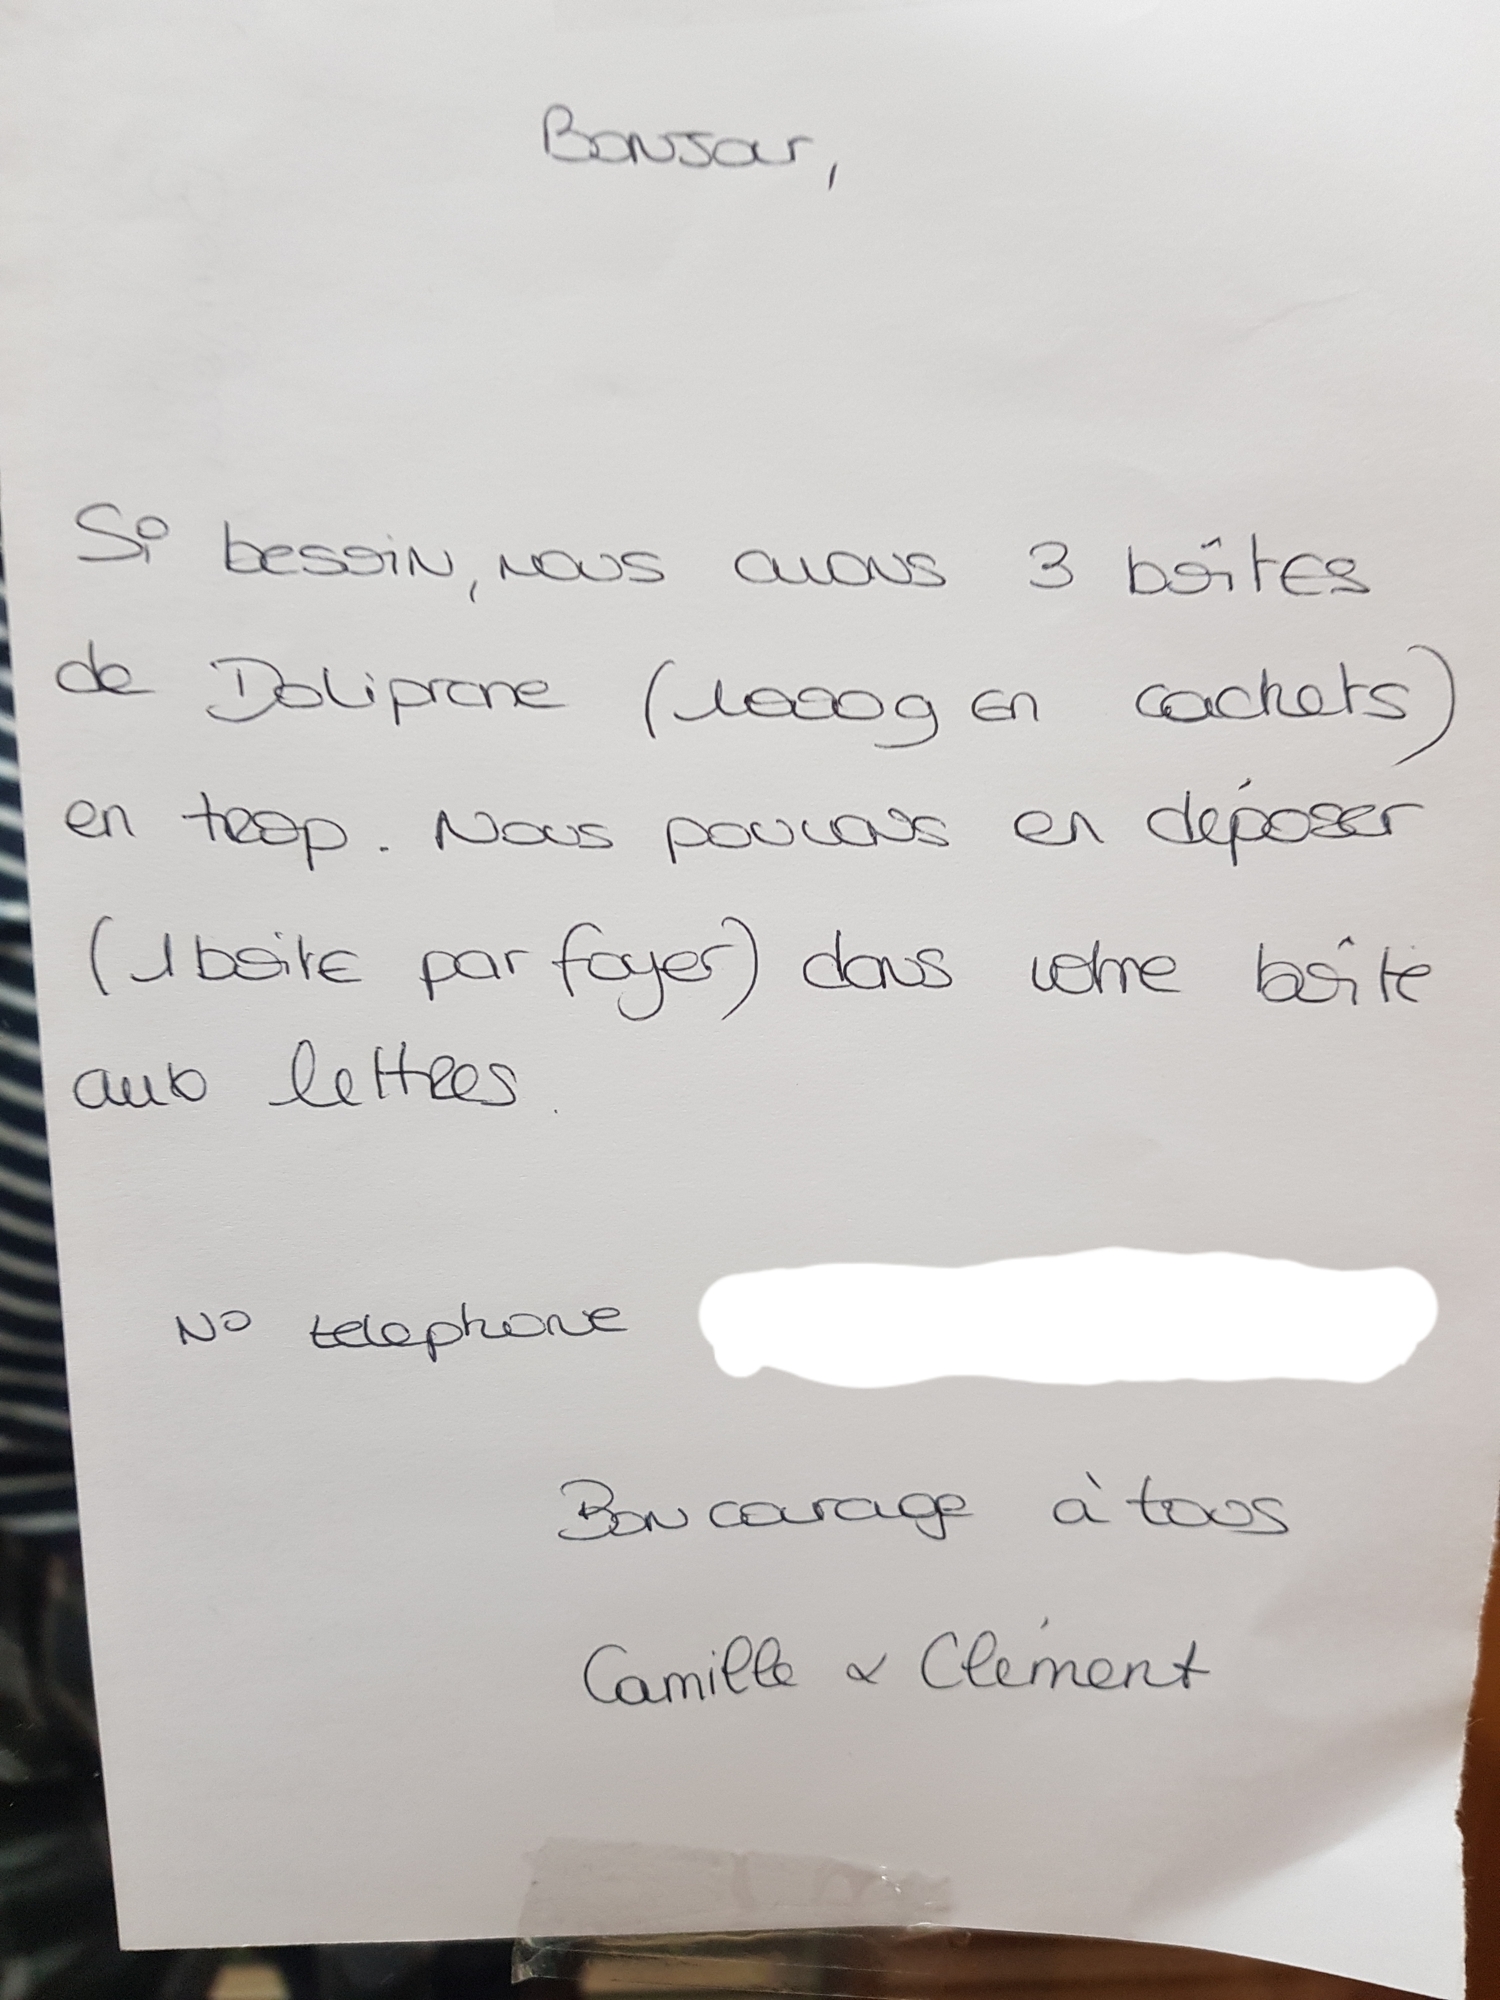 Bonjour,
Si besoin, nous avons 3 boîtes
de Doliprane (1000g en cachets)
en trop. Nous pouvons en déposer
(1 boite par foyer) dans votre boîte
aux lettres.
No telephone
Bon courage à tous
Camille & Clément